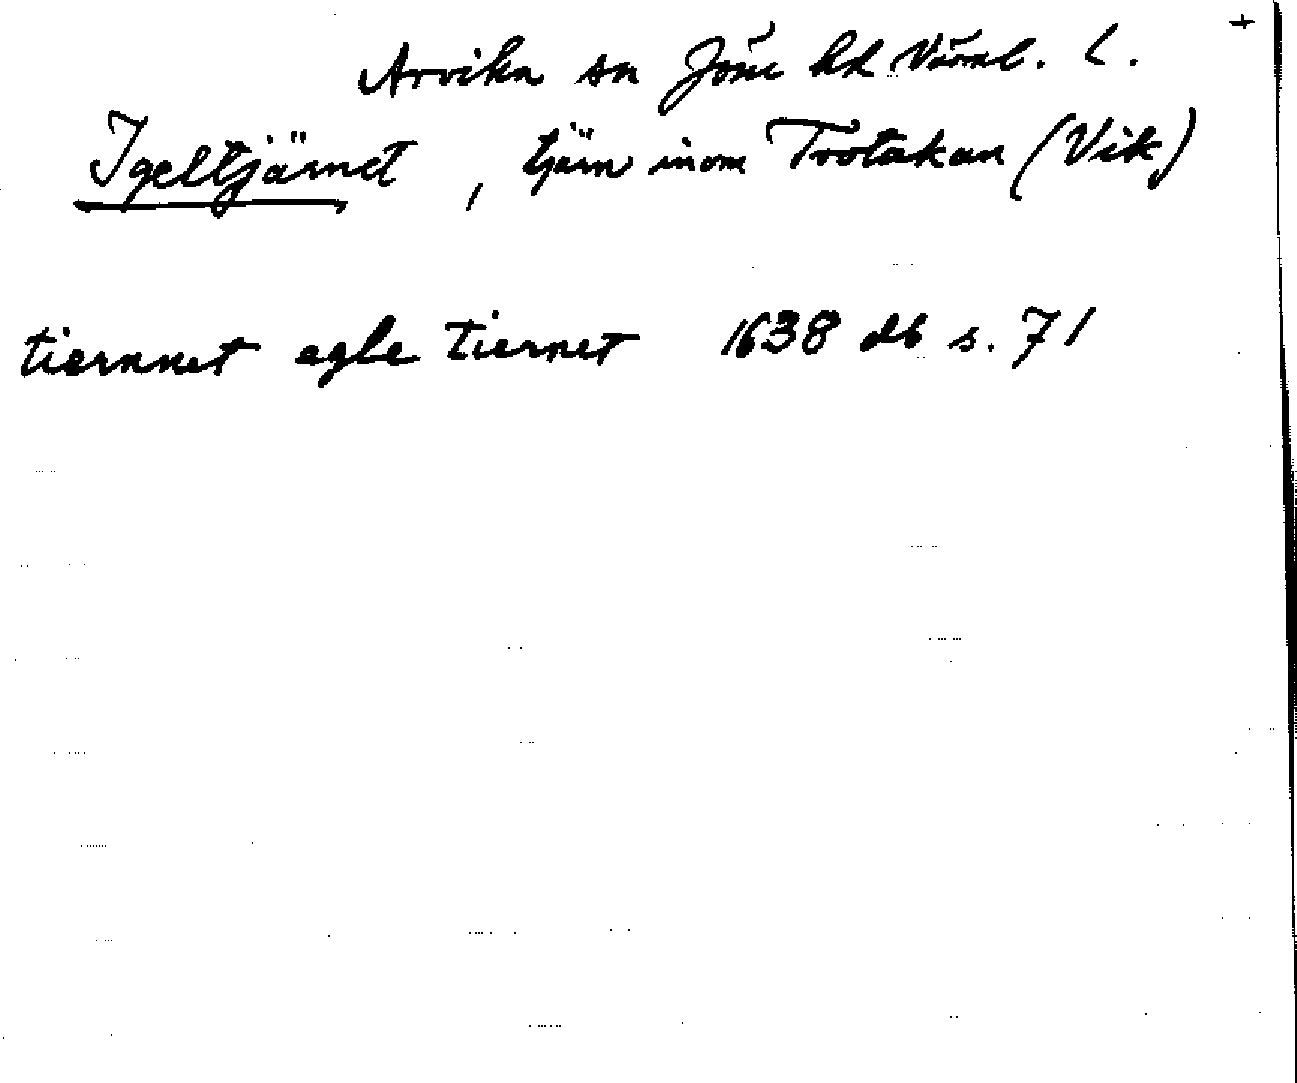 +
Arvika sn Jösse hd Värml. L.
Igeltjärnet, tjärn inom Trotakan (Vik)
tiernnet egle tiernet 1638 db s. 71